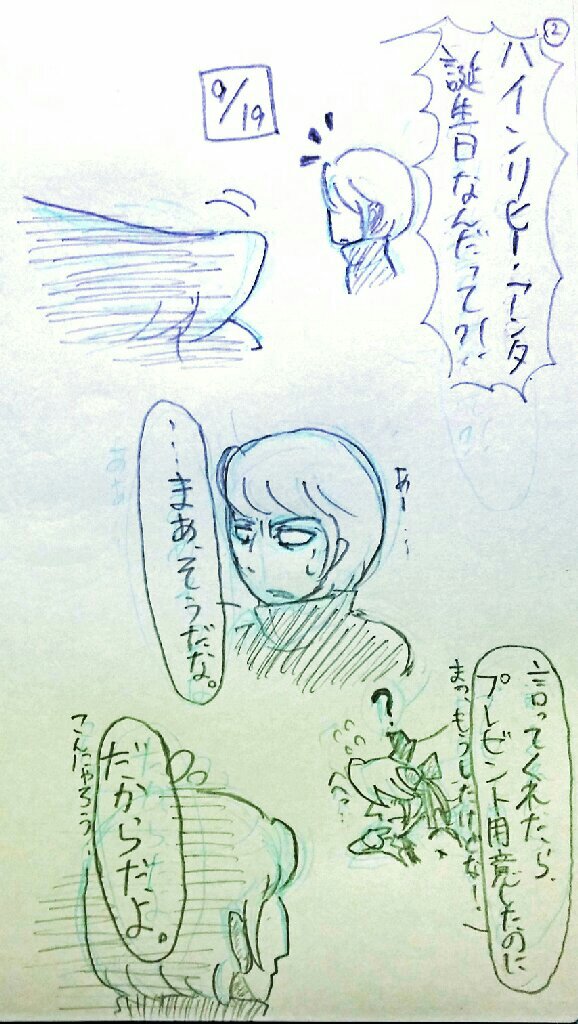 ②
ハインリヒー・アンタ
誕生日なんだって?!
9/19
あー…
…まあ、そうだな。
言ってくれたら、
プレゼント用意したのに
まっもうしたけどなー…
?
だからだよ。
こんにゃろう…